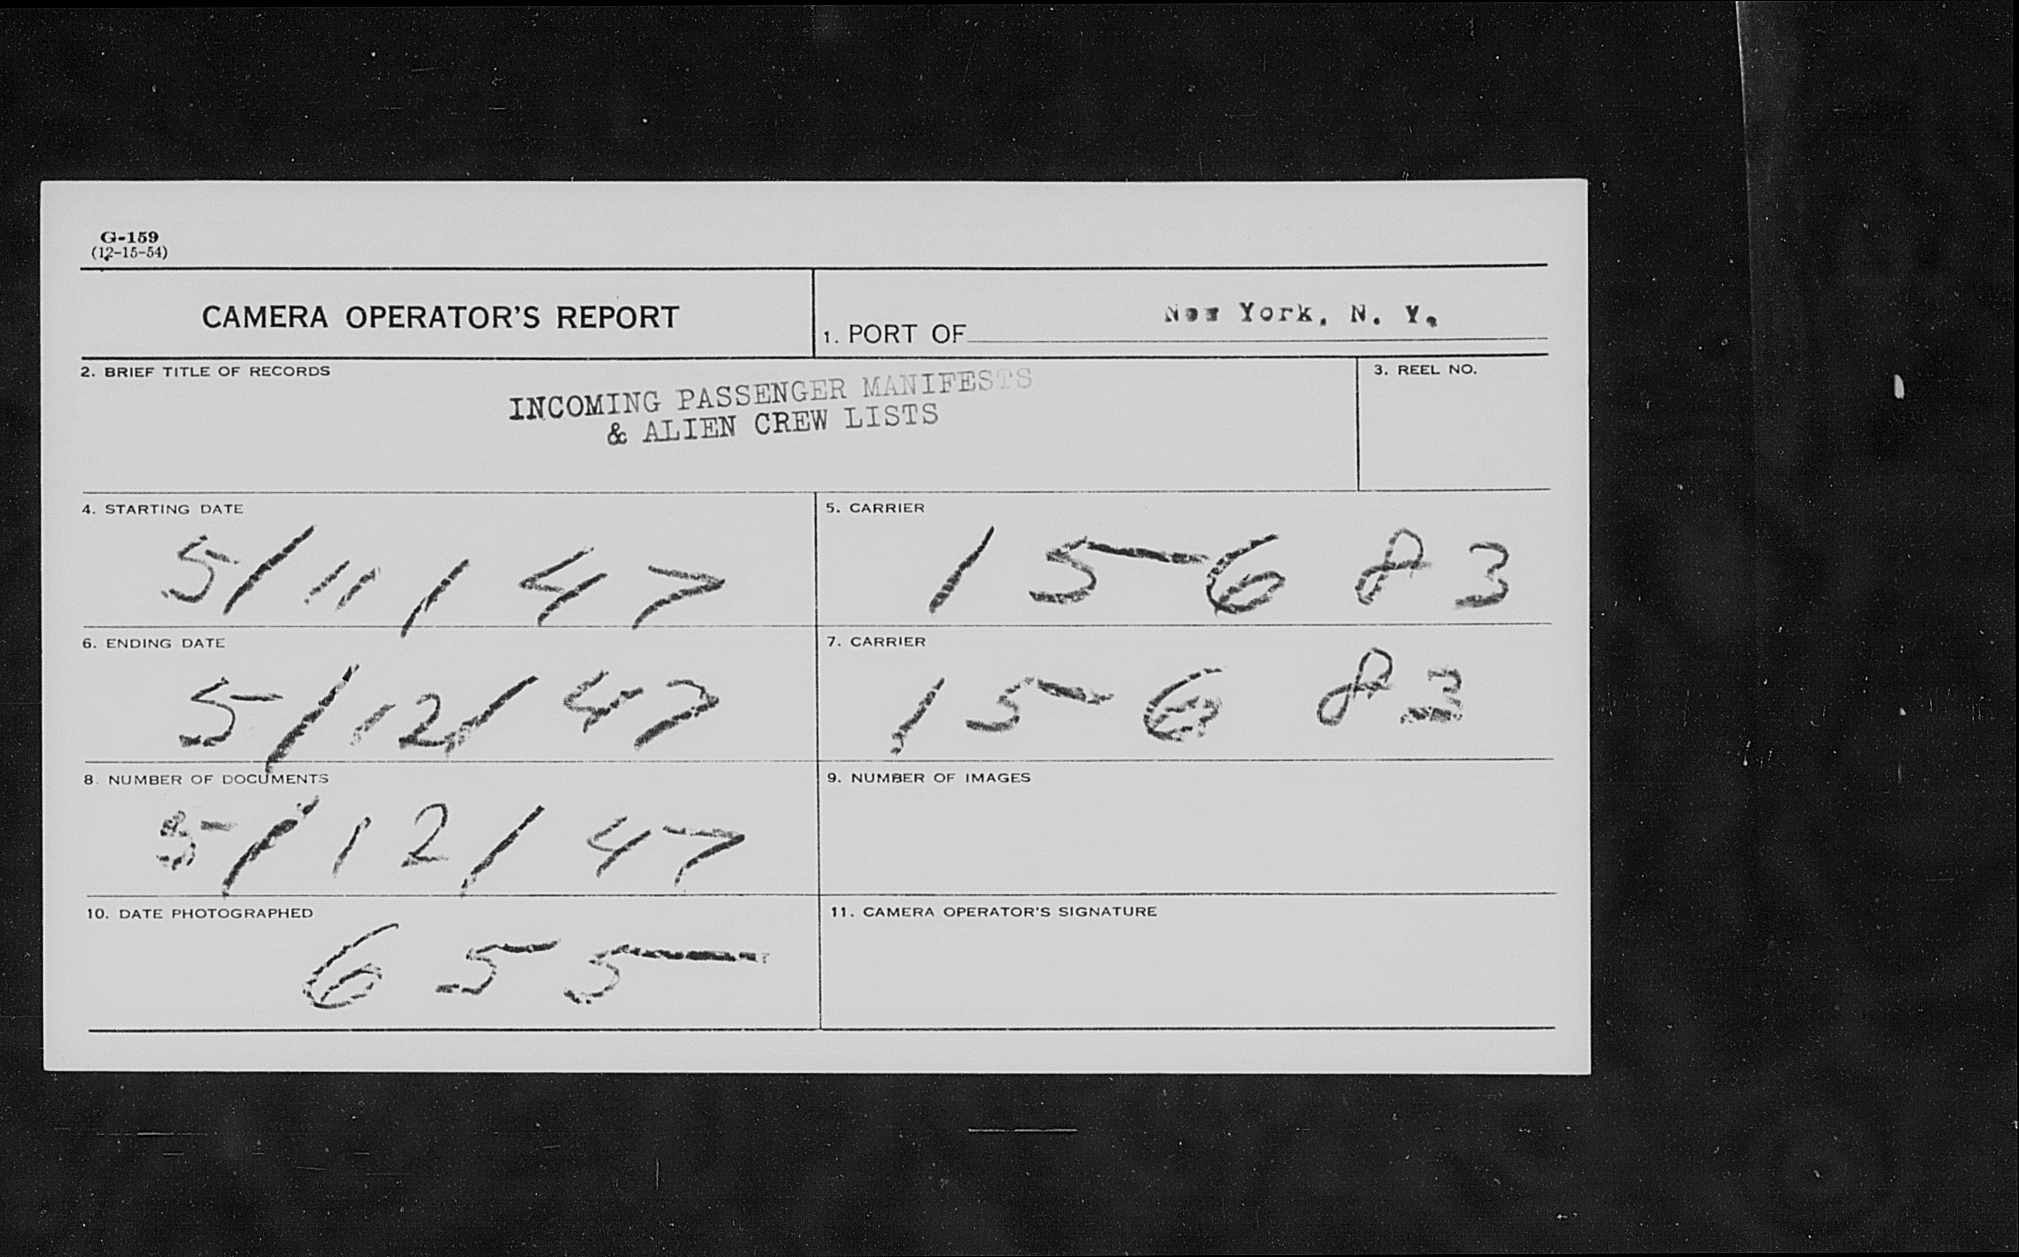 G-159
(12-15-54)
CAMERA OPERATOR'S REPORT
1. PORT OF New York, N. Y.
2. BRIEF TITLE OF RECORDS
INCOMING PASSENGER MANIFESTS
& ALIEN CREW LISTS
3. REEL NO.
4. STARTING DATE
5/11/47
5. CARRIER
15683
6. ENDING DATE
5/12/47
7. CARRIER
15683
8. NUMBER OF DOCUMENTS
5/12/47
9. NUMBER OF IMAGES
10. DATE PHOTOGRAPHED
655
11. CAMERA OPERATOR'S SIGNATURE